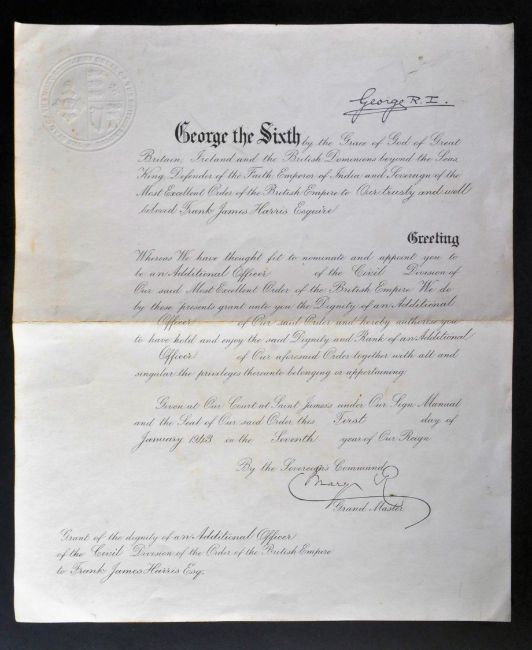 George R.I.
George the Sixth by the Grace of God of Great
Britain, Ireland and the British Dominions beyond the Seas
King, Defender of the Faith, Emperor of India and Sovereign of the
Most Excellent Order of the British Empire to Our trusty and well
beloved Frank James Harris Esquire
Greeting
Whereas We have thought fit to nominate and appoint you to
be an Additional Officer of the Civil Division of
Our said Most Excellent Order of the British Empire We do
by these presents grant unto you the Dignity of an Additional
Officer of Our said Order and hereby authorise you
to have hold and enjoy the said Dignity and Rank of an Additional
Officer of Our aforesaid Order together with all and
singular the privileges thereunto belonging or appertaining.
Given at Our Court at Saint James's under Our Sign Manual
and the Seal of Our said Order this First day of
January 1943 in the Seventh year of Our Reign
By the Sovereign's Command
Mary R
Grand Master
Grant of the dignity of an Additional Officer
of the Civil Division of the Order of the British Empire
to Frank James Harris Esq.